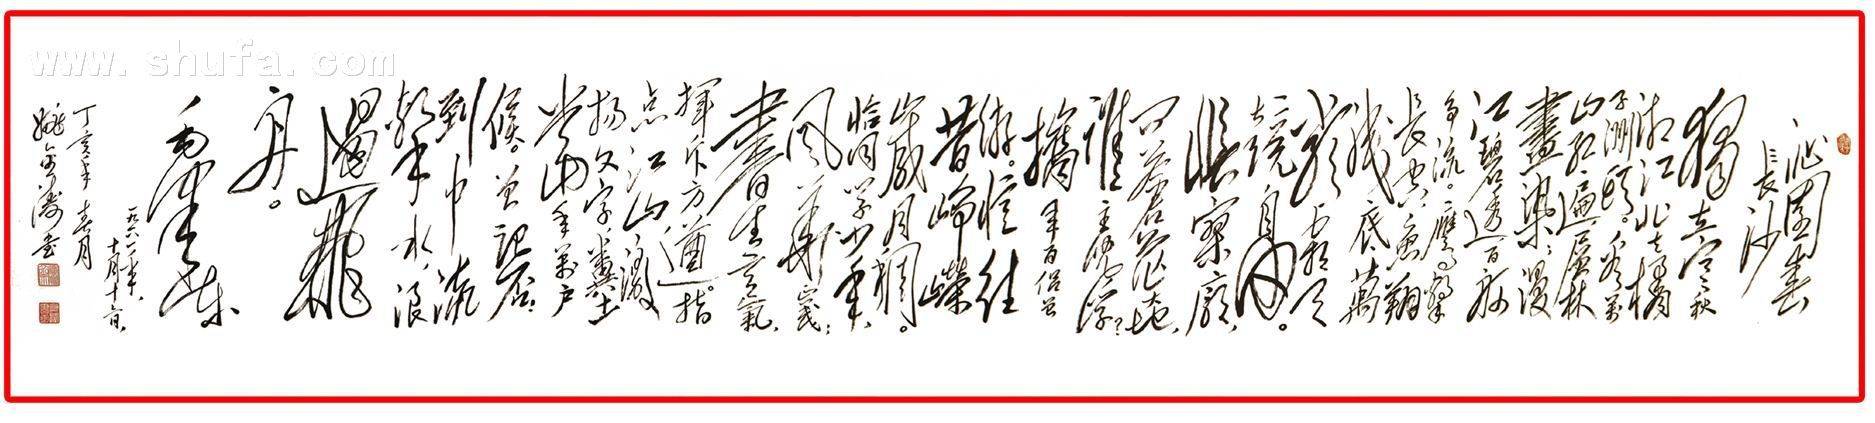 www.shufa.com
沁园春
长沙
独
立寒秋
湘江北去橘
子洲头。看万
山红遍层林
尽染；漫
江碧透百舸
争流。鹰击
长空鱼翔
浅底万
类霜天
竞自由。
怅寥廓，
问苍茫大地，
谁主沉浮？
携来百侣曾
游。忆往
昔峥嵘
岁月稠。
恰同学少年，
风华正茂；
书生意气，
挥斥方遒。指
点江山，激
扬文字，粪土
当年万户
侯。曾记否，
到中流
击水，浪
遏飞
舟。
毛泽东
一九六一年
十月十六日
丁亥年春月